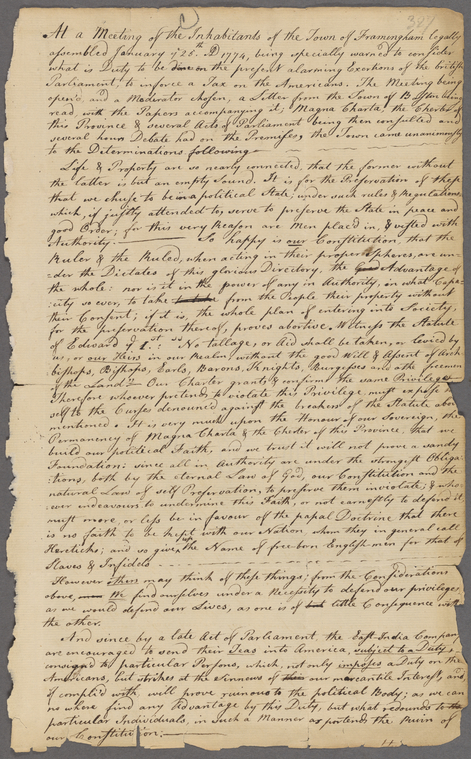 397
At a Meeting of the Inhabitants of the Town of Framingham legally
assembled January ye 25th AD 1774, being specially warned to consider
what is Duty to be done on the present alarming Exertions of the british
Parliament, to inforce a Tax on the Americans. The Meeting being
open'd, and a Moderator chosen, a Letter from the Town of Boston being
read, with the Papers accompanying it; Magna Charta, the Charter of
this Province & several Acts of Parliament being then consulted and
several hours Debate had on the Premises, the Town came unanimously
to the Determinations following
Life & Property are so nearly connected, that the former without
the latter is but an empty sound. It is for the Preservation of these
that we chuse to be in a political State; under such rules & Regulations
which, if justly attended to, serve to preserve the State in peace and
good Order; for this very Reason are Men plac'd in, & vested with
Authority. So happy is our Constitution, that the
Ruler & the Ruled, when acting in their proper spheres, are un-
-der the Dictates of this glorious Directory, the Advantage of
the whole: nor is it in the power of any in Authority, in what Capa-
-city so ever, to take from the People their property without
their Consent; if it is, the whole plan of entering into Society,
for the preservation thereof, proves abortive. Witness the Statute
of Edward ye 1st No tallage, or Aid shall be taken, or levied by
us, or our Heirs in our Realm without the good Will & Assent of Arch
bishops, Bishops, Earls, Barons, Knights, Burgesses and other freemen
of the Land? Our Charter grants & confirms the same Privileges
Therefore whoever pretends to violate this Privilege must expose him
self to the Curses denounced against the breakers of the Statute above
mentioned. It is very much upon the Honour of our Sovereign, the
Permanency of Magna Charta & the Charter of this Province, that we
build our political Faith, and we trust it will not prove a sandy
Foundation: since all in Authority are under the strongest Obliga
-tions, both by the eternal Law of God, our Constitution and the
natural Law of self Preservation, to preserve them inviolate; & who-
-ever endeavours to undermine this Faith, or not earnestly to defend it
must more, or less be in favour of the papal Doctrine that there
is no faith to be kept with our Nation whom they in general call
Hereticks; and so give up the Name of free-born English-men for that of
Slaves & Infidels
However others may think of these things; from the Considerations
above, We find ourselves under a Necessity to defend our privileges,
as we would defend our Lives, as one is of little Consequence without
the other.
And since by a late Act of Parliament, the East-India Company
are encouraged to send their Teas into America, subject to a Duty &
consign'd to particular Persons, which, not only imposes a Duty on the
Americans, but strikes at the sinnews of our mercantile Interest, and
if complied with, will prove ruinous to the political Body; as we can
no where find any Advantage by this Duty, but what redounds to
particular Individuals, in such a Manner as portends the Ruin of
our Constitution: